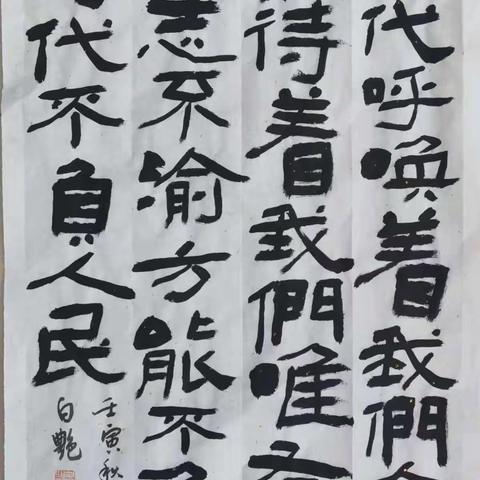 代呼喚着我們
待着我們唯
志不渝方能不
代不負人民
壬寅秋
白艷